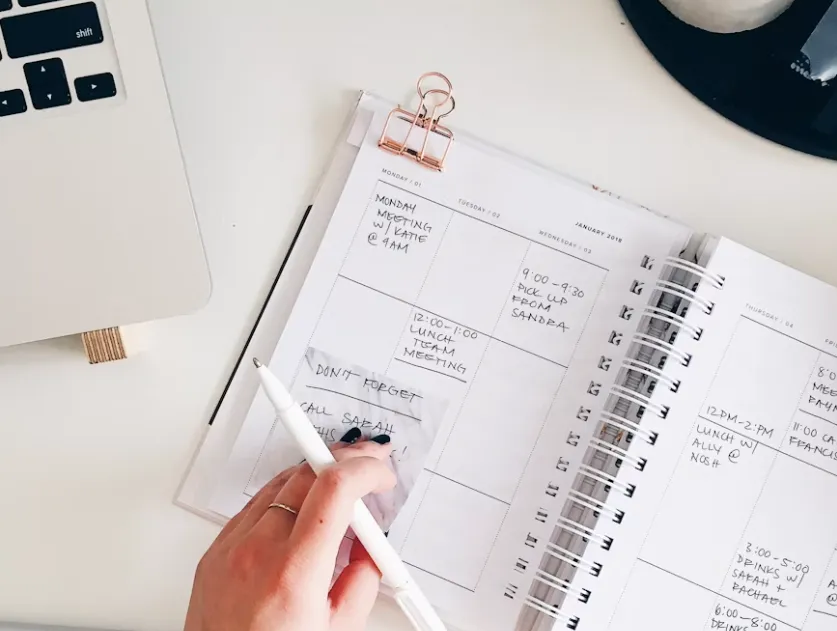 shift
MONDAY / 01
TUESDAY / 02
WEDNESDAY / 03
JANUARY 2018
MONDAY
MEETING
W/ KATIE
@ 9AM
9:00 - 9:30
PICK UP
FROM
SANDRA
12:00 - 1:00
LUNCH
TEAM
MEETING
DON'T FORGET
CALL SARAH
THURSDAY / 04
12PM - 2PM
LUNCH W/
ALLY @
NOSH
3:00 - 5:00
DRINKS W/
SARAH +
RACHAEL
11:00
6:00 - 8:00
DRINKS